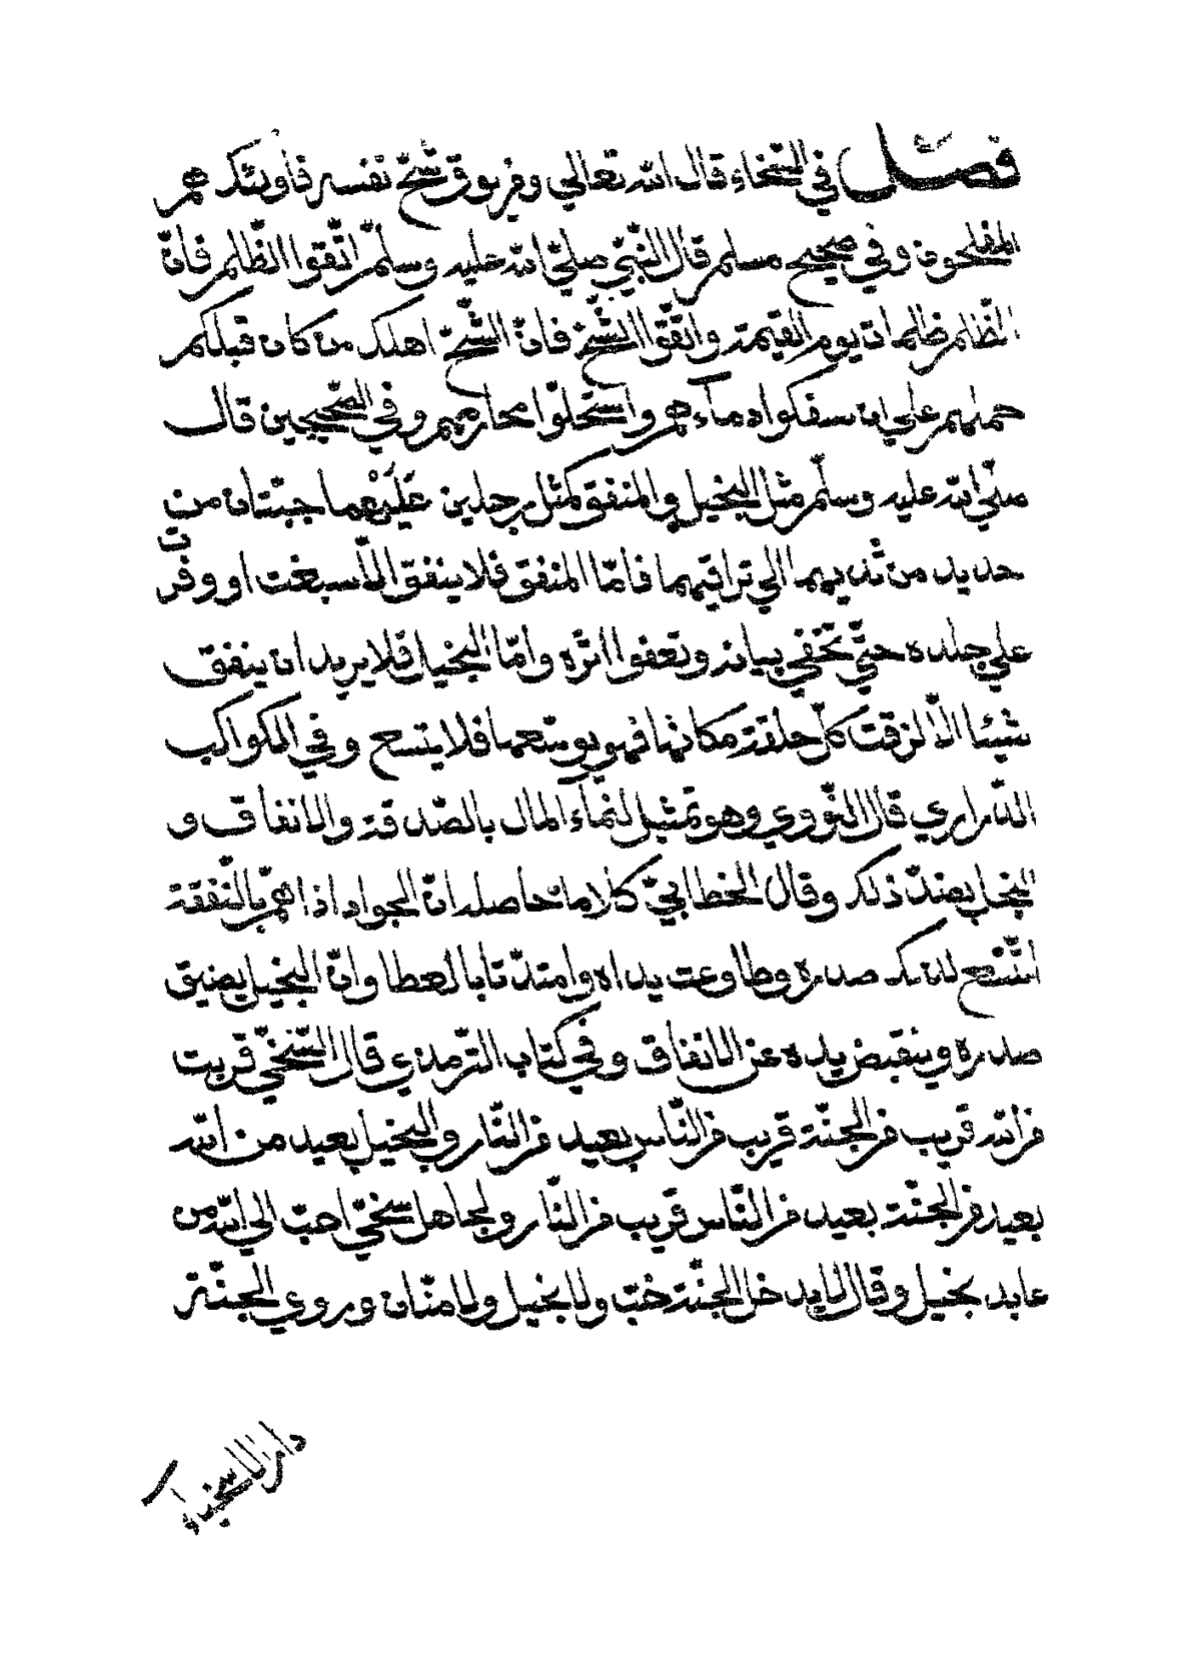 فصل في السّخاء قال الله تعالي ومن يوق شحّ نفسه فاولئك هم
المفلحون وفي صحيح مسلم قال النّبيّ صليّ الله عليه وسلّم اتّقوا الظّلم فانّ
الظّلم ظلمات يوم القيمة واتّقوا الشّحّ فانّ الشّحّ اهلك من كان قبلكم
حملهم علي ان سفكوا دمآءهم واستحلّوا محارمهم وفي الصّحيحين قال
صلّي الله عليه وسلّم مثل البخيل والمنفق كمثل رجلين عَلَيْهما جبّتان من
حديد من ثديهما الي تراقيهما فامّا المنفق فلا ينفق الّا سبغت او وفرت
علي جلده حتّي تخفي بيانه وتعفوا اثره وامّا البخيل فلا يريد ان ينفق
شيئا الّا لزقت كلّ حلقة مكانها فهو يوسّعها فلا يتسع وفي الكواكب
الدّراري قال النّووي وهو تمثيل لنمآء المال بالصّدقة والانفاق و
البخل بضدّ ذلك وقال الخطابيّ كلاما حاصله انّ الجواد اذا همّ بالنّفقة
اتّسع لذلك صدره وطاوعت يداه وامتدّتا بالعطا وانّ البخيل يضيق
صدره وينقبض يده عن الانفاق وفي كتاب التّرمذي قال السّخيّ قريب
من الله قريب من الجنّة قريب من النّاس بعيد من النّار والبخيل بعيد من الله
بعيد من الجنّة بعيد من النّاس قريب من النّار ولجاهل سخيّ احبّ الي الله من
عابد بخيل وقال لا يدخل الجنّة خبّ ولا بخيل ولا منّان وروي الجنّة
دار الاسخياء